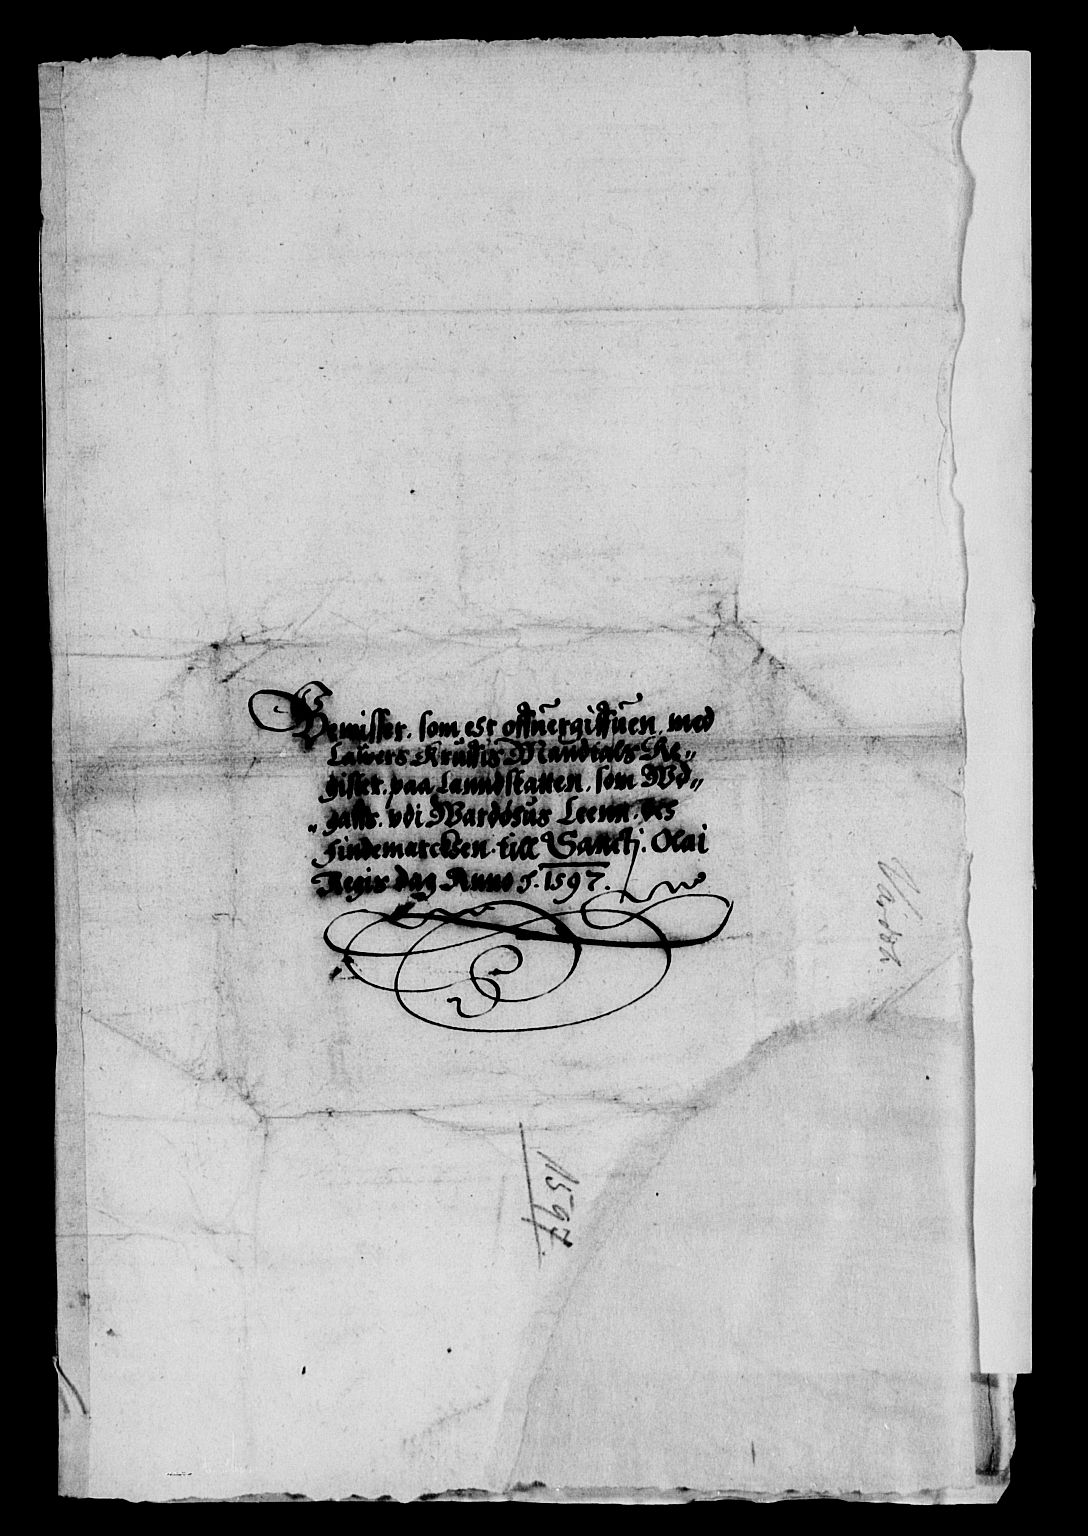 Bemisser. som est offuergiffuen. med
Lauers Kruffis Mandtals Re„
gister. paa Lanndskatten. som Wd„
„gaffs. vdi Wardøhus Leenn.
Findemarcken. till Sanctj. Olai
Regis dag Anno 1597.
Vardøh.
1597.